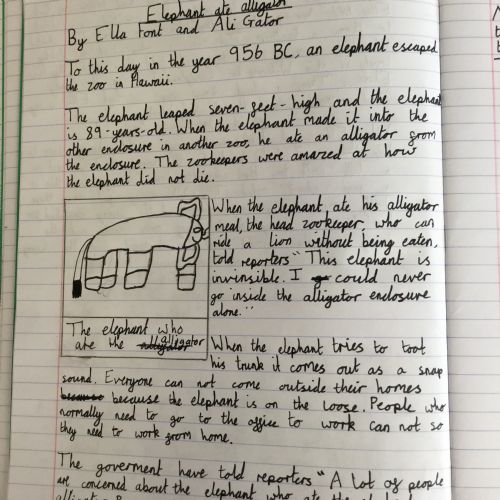 Elephant ate alligator
By Ella Font and Ali Gator
To this day in the year 956 BC, an elephant escaped
the zoo in Hawaii.
The elephant leaped seven-feet-high and the elephant
is 89-years-old. When the elephant made it into the
other enclosure in another zoo, he ate an alligator from
the enclosure. The zookeepers were amazed at how
the elephant did not die.
When the elephant, ate his alligator
meal, the head zookeeper, who can
ride a lion without being eaten,
told reporters "This elephant is
invinsible. I could never
go inside the alligator enclosure
alone."
The elephant who
ate the alligator
When the elephant tries to toot
his trunk it comes out as a snap
sound. Everyone can not come outside their homes
because because the elephant is on the loose. People who
normally need to go to the office to work can not so
they need to work from home.
The goverment have told reporters "A lot of people
are concerned about the elephant who ate the